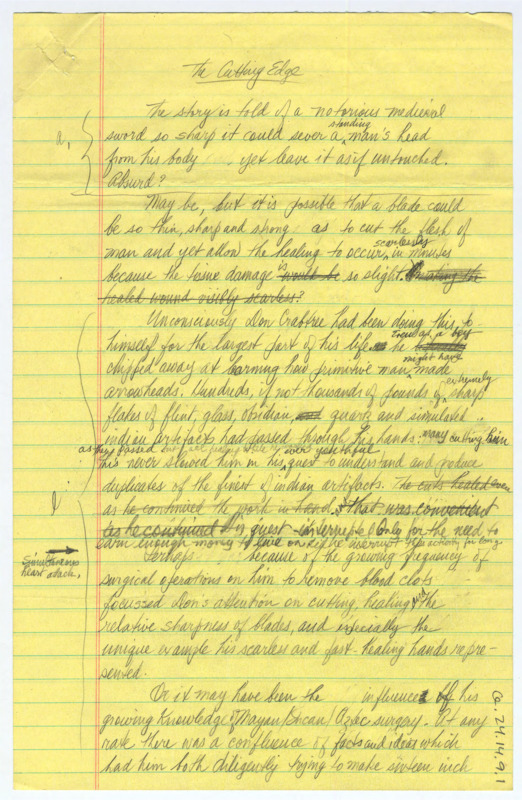 The Cutting Edge
The story is told of a notorious medieval
a,
sword so sharp it could sever a standing man's head
from his body yet leave it as if untouched.
Absurd?
May be, but it is possible that a blade could
be so thin, sharp and strong as to cut the flesh of
man and yet allow the healing to occur scarlessly in minutes
because the tissue damage is would be so slight. making the
healed wound visibly scarless?
Unconsciously Don Crabtree had been doing this to
himself for the largest part of his life as he
chipped away at learning how primitive man might have made
arrowheads. Hundreds, if not thousands of pounds of extremely sharp
flakes of flint, glass, obsidian, and quartz and simulated
indian artifacts had passed through his hands. many cutting him
as they passed over youthful
his never slowed him in his quest to understand and produce
duplicates of the finest of indian artifacts. The cuts healed even
as he continued the work in hand. that was convenient
as he continued quest interrupted only for the need to
earn enough money to
Perhaps because of the growing frequency of
simultaneous
heart attack,
surgical operations on him to remove blood clots
focussed Don's attention on cutting, healing and the
relative sharpness of blades, and especially the
unique example his scarless and fast-healing hands repre-
sented.
Or it may have been the influence of his
growing knowledge of Mayan/Incan/Aztec surgery. At any
rate there was a confluence of facts and ideas which
had him both diligently trying to make sixteen inch
Ca.24.14.9.1